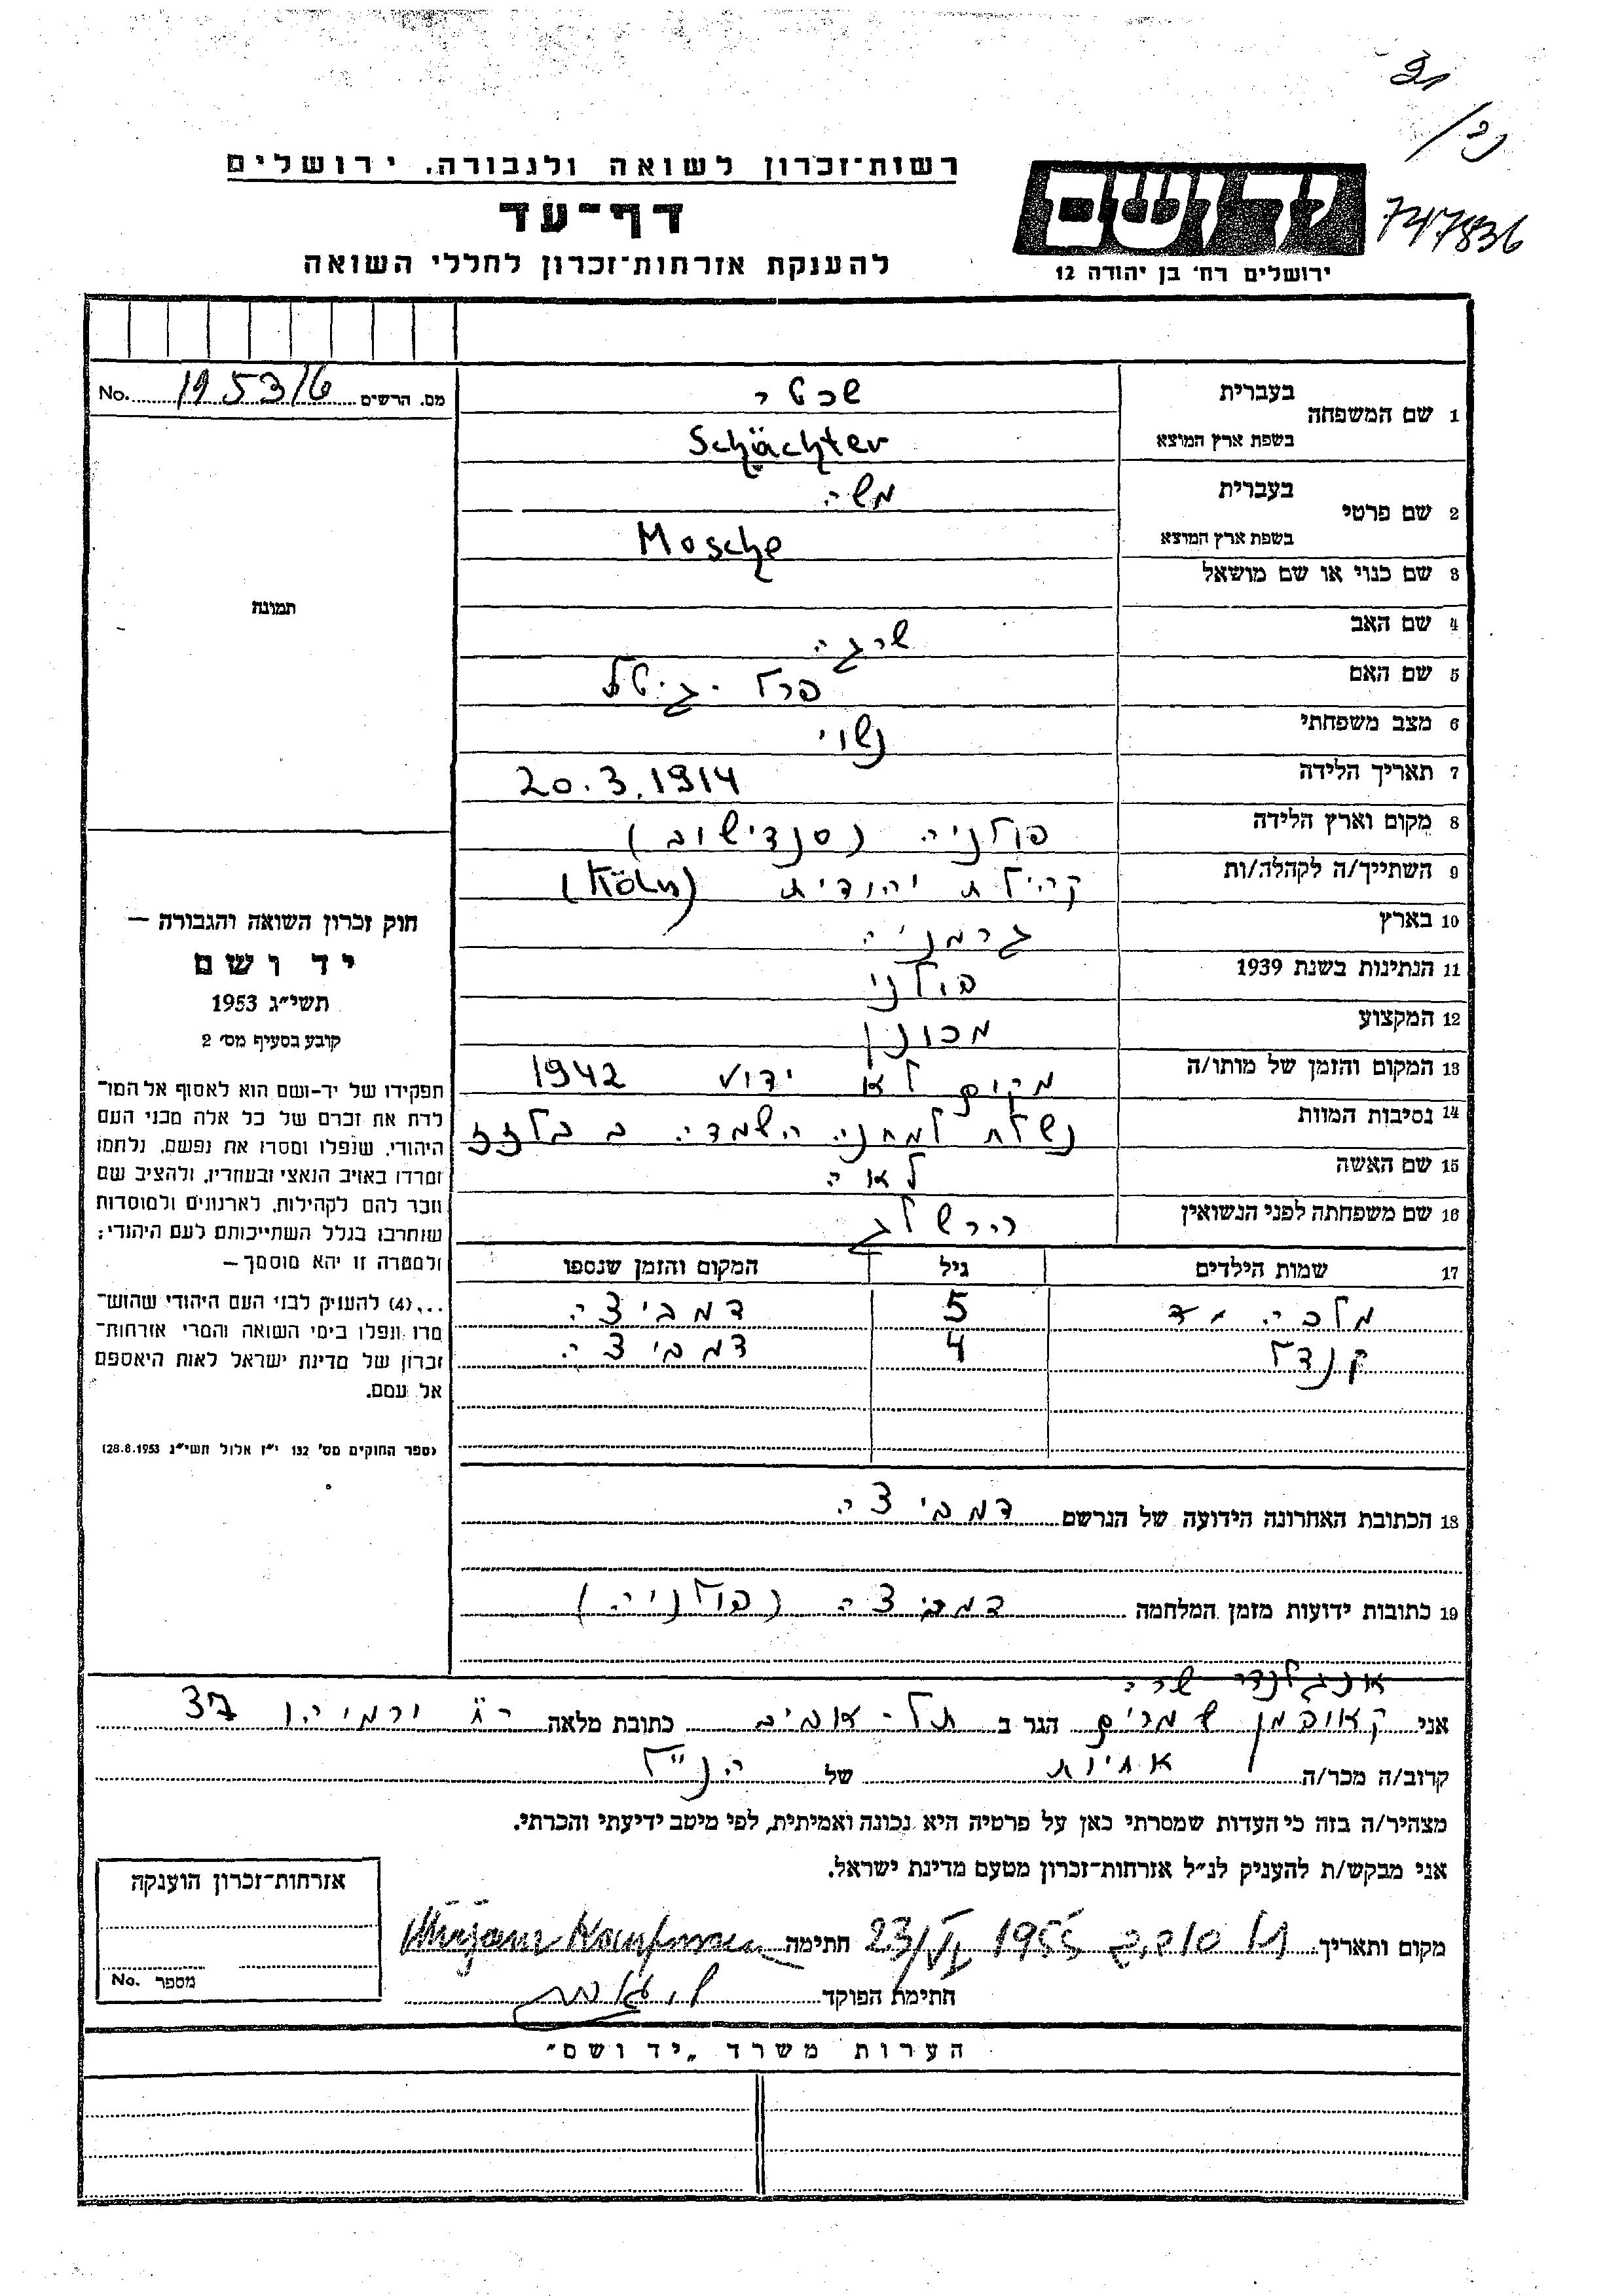 רשות־זכרון לשואה ולגבורה. ירושלים
דף־עד
להענקת אזרחות־זכרון לחללי השואה
יד ושם
ירושלים רח׳ בן יהודה 12
747836
מס. הרשים 195316 No.
תמונה
חוק זכרון השואה והגבורה —
יד ושם
תשי״ג 1953
קובע בסעיף מס׳ 2
תפקידו של יד־ושם הוא לאסוף אל המו־
לדת את זכרם של כל אלה מבני העם
היהודי. שנפלו ומסרו את נפשם. נלחמו
ומרדו באויב הנאצי ובעוזריו. ולהציב שם
וזכר להם לקהילות. לארגונים ולמוסדות
שנחרבו בגלל השתייכותם לעם היהודי;
ולמטרה זו יהא מוסמך —
...(4) להעניק לבני העם היהודי שהוש־
מדו ונפלו בימי השואה והמרי אזרחות־
זכרון של מדינת ישראל לאות היאספם
אל עמם.
(ספר החוקים מס׳ 132 י״ז אלול תשי״ג 28.8.1953)
1 שם המשפחה בעברית שכטר
בשפת ארץ המוצא Schächter
2 שם פרטי בעברית משה
בשפת ארץ המוצא Mosche
3 שם כנוי או שם מושאל
4 שם האב שרגה
5 שם האם פרל - גיטל
6 מצב משפחתי נשוי
7 תאריך הלידה 20.3.1914
8 מקום וארץ הלידה פולניה (סנדישוב)
9 השתייך/ה לקהלה/ות קהילת יהודית (Köln)
10 בארץ גרמניה
11 הנתינות בשנת 1939 פולני
12 המקצוע מכונן
13 המקום והזמן של מותו/ה מקום לא ידוע 1942
14 נסיבות המוות נשלח למחנה השמדה ב בלזז
15 שם האשה לאה
16 שם משפחתה לפני הנשואין הירשלג
17 שמות הילדים גיל המקום והזמן שנספו
5 דמביצה
קנדל 4 דמביצה
18 הכתובת האחרונה הידועה של הנרשם דמביצה
19 כתובות ידועות מזמן המלחמה דמביצה (פולניה)
אנגלנדר שרה
אני קאופמן מרים הגר ב תל-אביב כתובת מלאה רח׳ ירמיהו 37
קרוב/ה מכר/ה אחות של הנ״ל
מצהיר/ה בזה כי העדות שמסרתי כאן על פרטיה היא נכונה ואמיתית, לפי מיטב ידיעתי והכרתי.
אני מבקש/ת להעניק לנ״ל אזרחות־זכרון מטעם מדינת ישראל.
מקום ותאריך 23/VI 1955 חתימה Mirjam Kaufmann
חתימת הפוקד
אזרחות־זכרון הוענקה
מספר No.
הערות משרד „יד ושם״